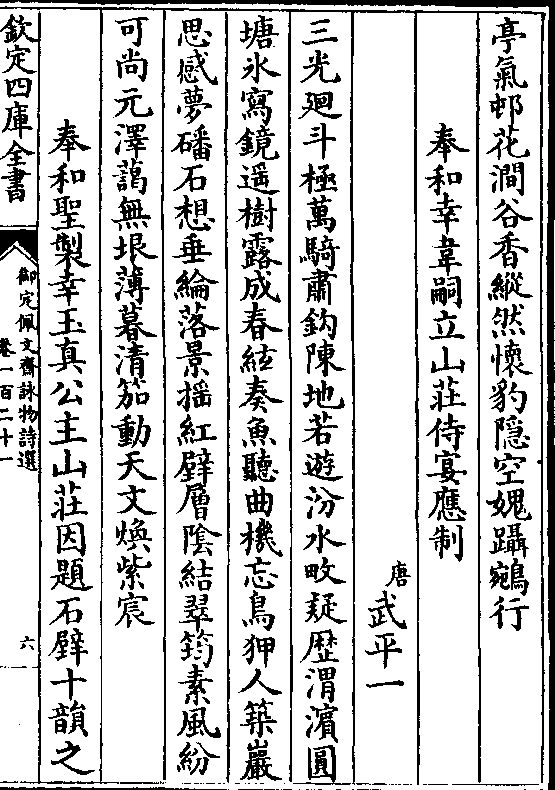 亭氣邨花澗谷香縱然懷豹隠空媿躡鵷行
奉和幸韋嗣立山莊侍宴應制
唐武平一
三光廻斗極萬騎肅鈎陳地若遊汾水畋疑歴渭濱圓
塘氷寫鏡遥樹露成春絃奏魚聽曲機忘鳥狎人築巖
思感夢磻石想垂綸落景揺紅壁層陰結翠筠素風紛
可尚元澤藹無垠薄暮清笳動天文煥紫宸
奉和聖製幸玉真公主山莊因題石壁十韻之
欽定四庫全書
御定佩文齋詠物詩選
卷一百二十一
六